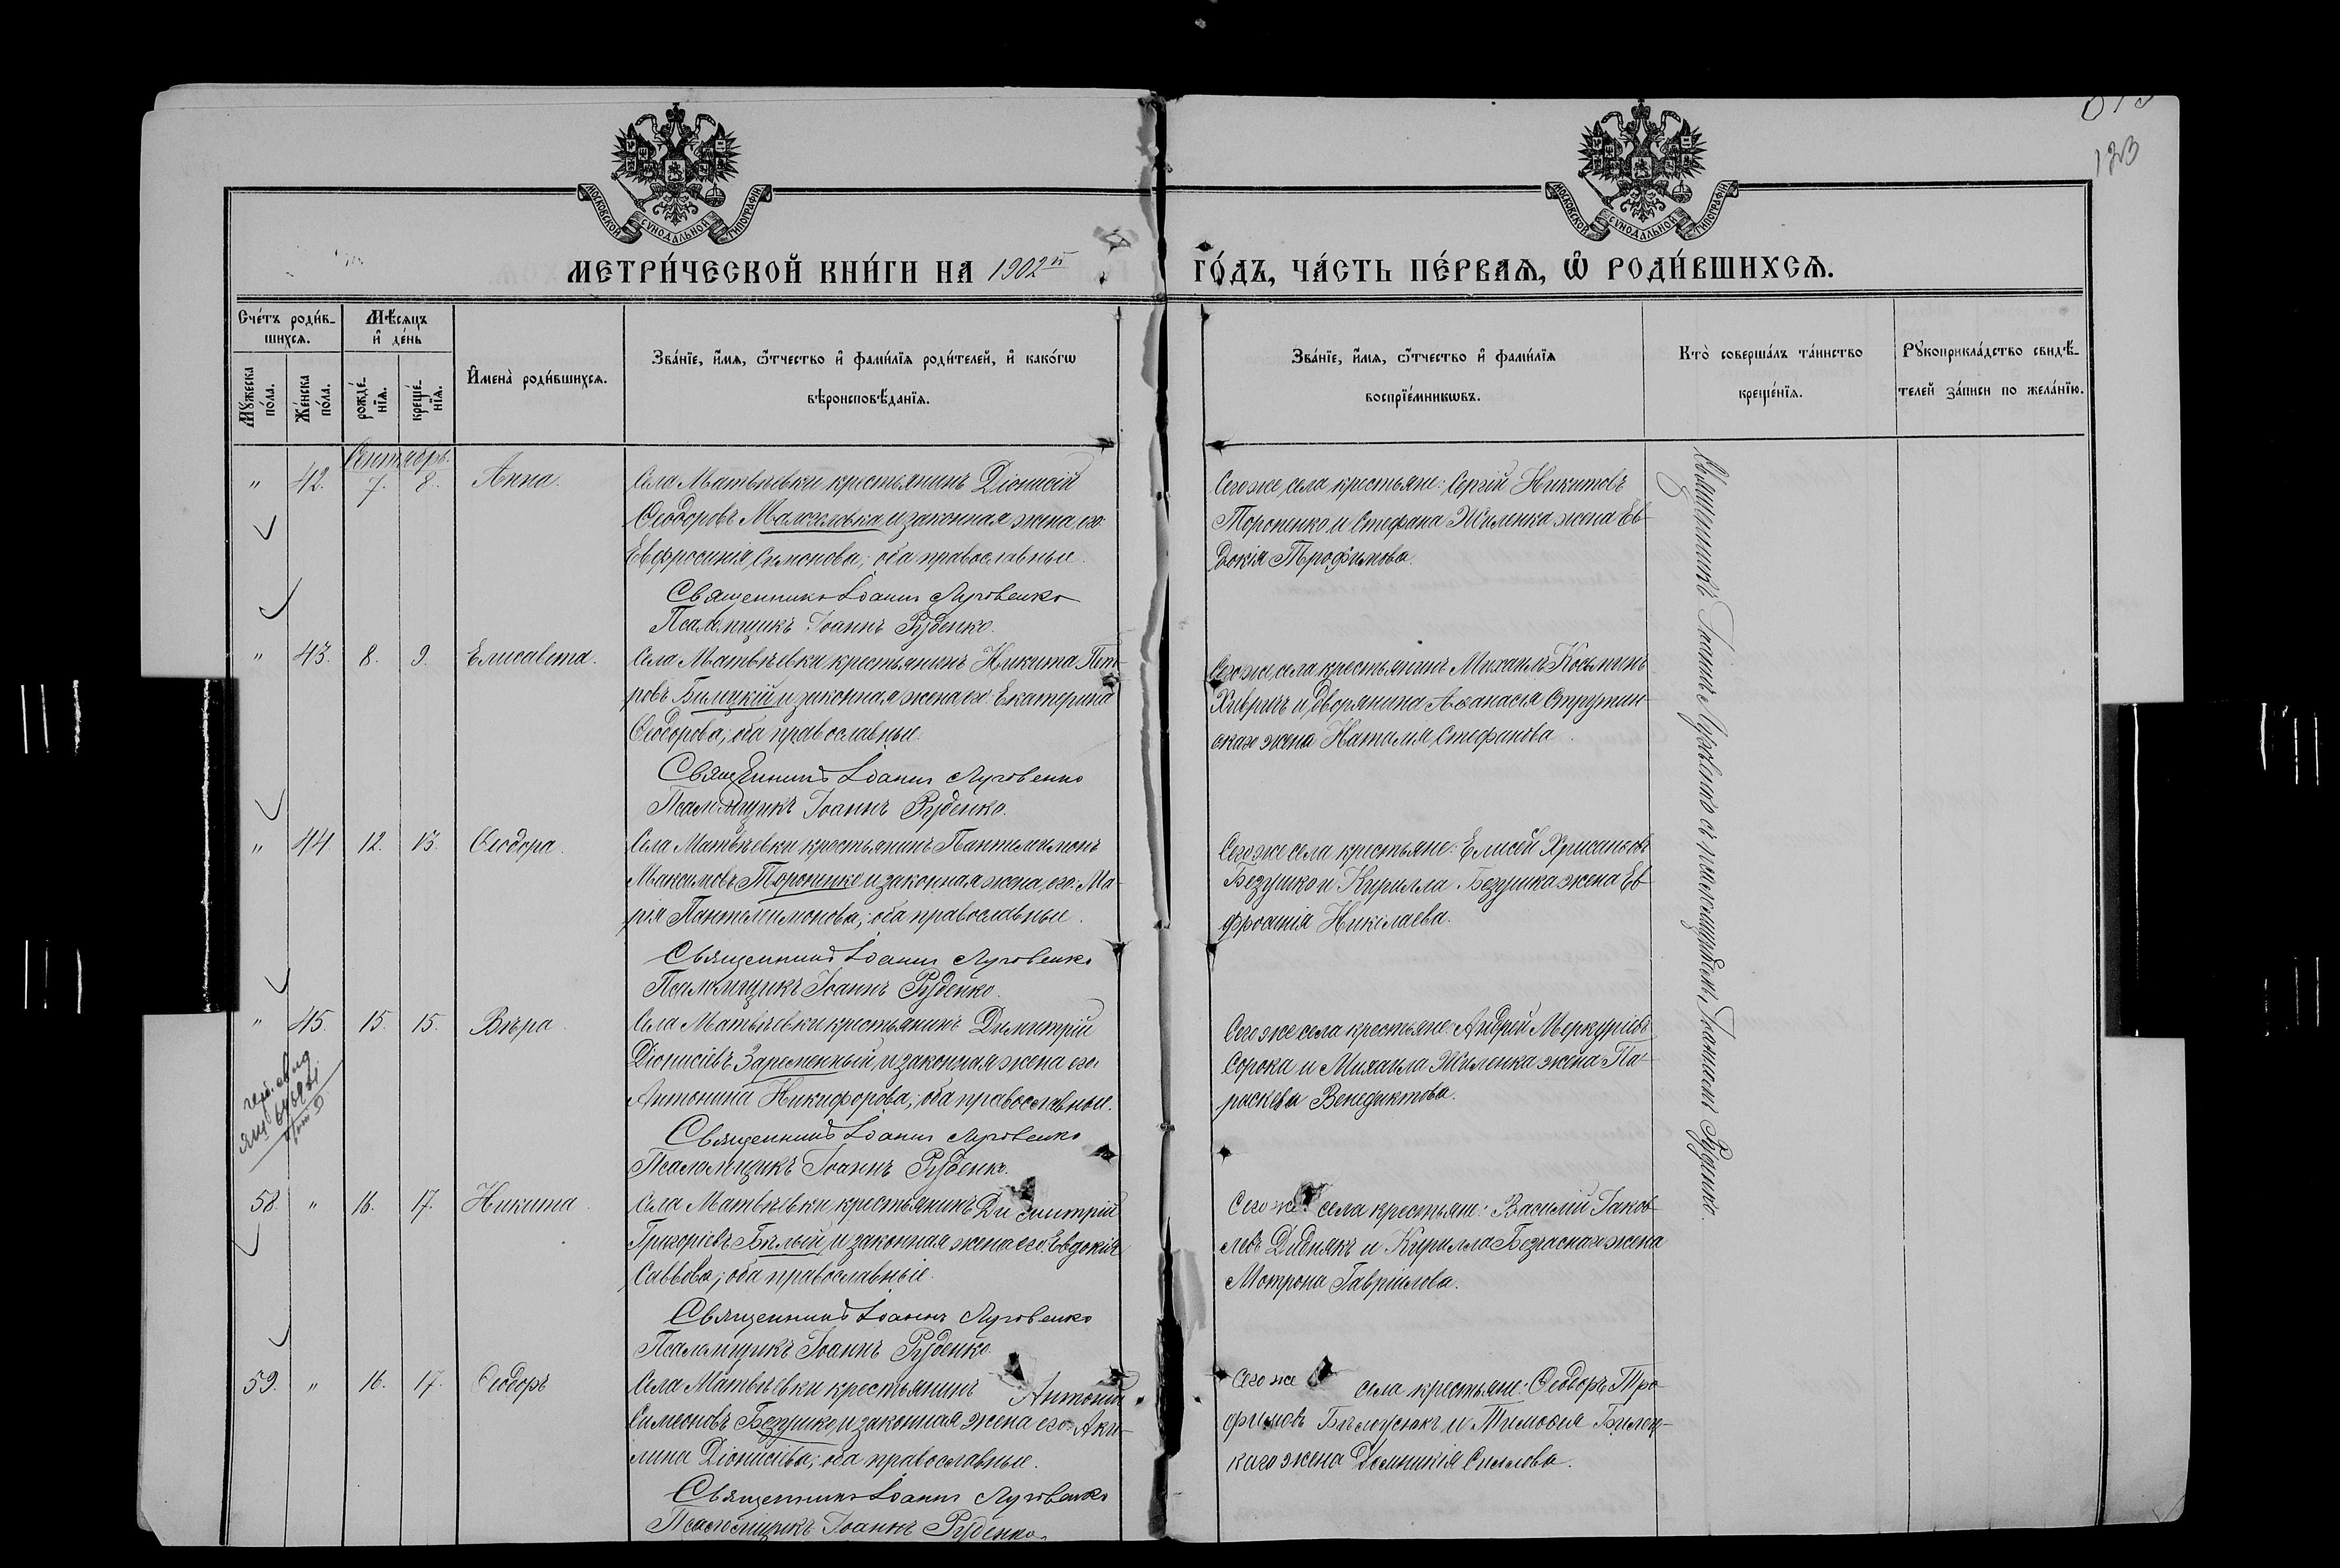 МОСКОВСКОЙ СУНОДАЛЬНОЙ ТИПОГРАФІИ
МОСКОВСКОЙ СУНОДАЛЬНОЙ ТИПОГРАФІИ
123
МЕТРИ́ЧЕСКОЙ КНИ́ГИ НА 1902й
ГО́ДЪ, ЧА́СТЬ ПЕ́РВАѦ, Ѿ РОДИ́ВШИХСѦ.
Сче́тъ роди́в-
шихсѧ.
Мѣ́сяцъ
и҆ де́нь
Мꙋ́жеска
по́ла.
Же́нска
по́ла.
рожде́-
нїѧ.
креще́-
нїѧ.
И҆мена̀ роди́вшихсѧ.
Зва́нїе, и҆́мѧ, ѻ҆́тчество и҆ фами́лїѧ роди́телей, и҆ како́гѡ
вѣроисповѣ́данїѧ.
Зва́нїе, и҆́мѧ, ѻ҆́тчество и҆ фами́лїѧ
воспрїе́мникѡвъ.
Кто̀ соверша́лъ та́инство
креще́нїѧ.
Рꙋкоприкла́дство свидѣ́-
телей за́писи по жела́нїю.
Сентябрь.
" 42. 7. 8. Анна.
Села Матвѣевки крестьянинъ Діонисій
Ѳеодоровъ Малоголовка и законная жена его
Евфросинія Симонова; оба православные.
Священникъ Іоаннъ Луговенко
Псаломщикъ Іоаннъ Руденко.
Сего же села крестьяне: Сергій Никитовъ
Торопенко и Стефана Жиленка жена Ев-
докія Трофимова.
" 43. 8. 9. Елисавета.
Села Матвѣевки крестьянинъ Никита Пет-
ровъ Билецкій и законная жена его Екатерина
Ѳеодорова; оба православные.
Священникъ Іоаннъ Луговенко
Псаломщикъ Іоаннъ Руденко.
Сего же села крестьянинъ Михаилъ Косьминъ
и дворянина Аѳанасія Струтин-
скаго жена Наталія Стефанова.
" 44 12. 13. Ѳеодора.
Села Матвѣевки крестьянинъ Пантелеимонъ
Максимовъ Торопенко и законная жена его Ма-
рія Пантелеимонова; оба православные.
Священникъ Іоаннъ Луговенко
Псаломщикъ Іоаннъ Руденко.
Сего же села крестьяне: Елисей Хрисанѳовъ
Безушко и Кирилла Безушка жена Ев-
фросинія Николаева.
" 45. 15. 15. Вѣра.
Села Матвѣевки крестьянинъ Димитрій
Діонисіевъ Заременный и законная жена его
Антонина Никифорова; оба православные.
Священникъ Іоаннъ Луговенко
Псаломщикъ Іоаннъ Руденко.
Сего же села крестьяне: Андрей Меркуріевъ
Сорока и Михаила Жиленка жена Па-
раскева Венедиктова.
58. " 16. 17. Никита.
Села Матвѣевки крестьянинъ Димитрій
Григоріевъ Бѣлый и законная жена его Евдокія
Саввова; оба православные.
Священникъ Іоаннъ Луговенко
Псаломщикъ Іоаннъ Руденко.
Сего же села крестьяне: Василій Іаков-
левъ Дидныкъ и Кирилла Безчаснаго жена
Мотрона Гавріилова.
59. " 16. 17. Ѳеодоръ
Села Матвѣевки крестьянинъ Антоній
Симеоновъ Безушко и законная жена его Аки-
лина Діонисіева; оба православные.
Священникъ Іоаннъ Луговенко
Псаломщикъ Іоаннъ Руденко.
Сего же села крестьяне: Ѳеодоръ Тро-
фимовъ Бѣлоусюкъ и Тимоѳея Билец-
каго жена Домникія Симова.
Священникъ Іоаннъ Луговенко съ псаломщикомъ Іоанномъ Руденко.